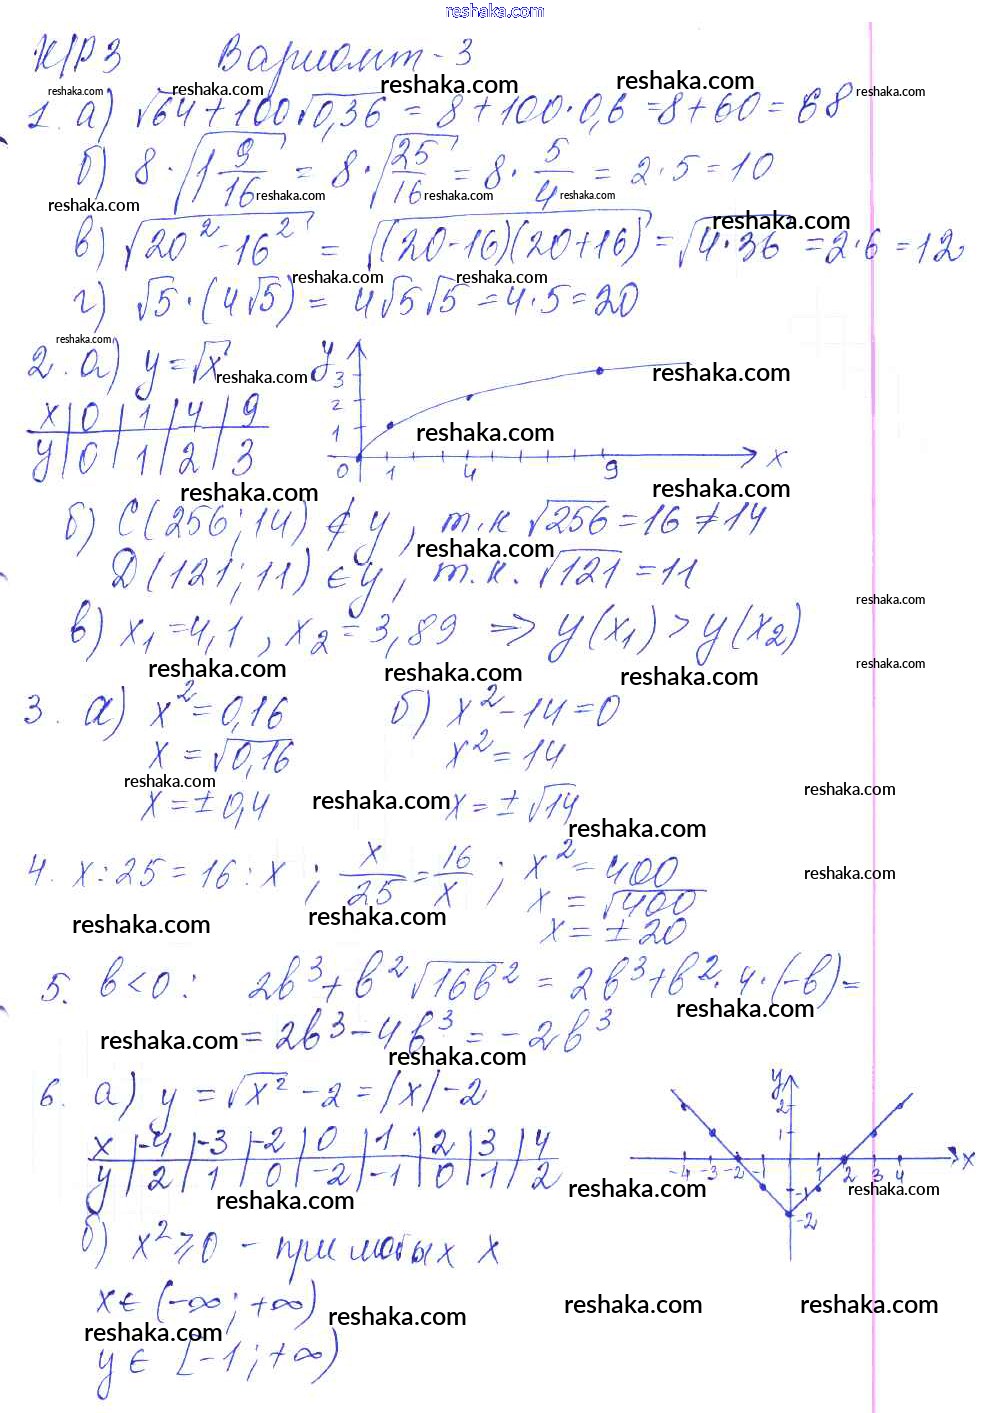 reshaka.com
К/Р 3 Вариант-3
1. а) √64+100√0,36 = 8+100·0,6 =8+60=68
б) 8·√1 9/16 = 8·√25/16 = 8· 5/4 = 2·5=10
в) √20²-16² = √(20-16)(20+16) = √4·36 =2·6=12
г) √5·(4√5) = 4√5√5 =4·5=20
2. а) y=√x
x 0 1 4 9
y 0 1 2 3
y 3 2 1 0 1 4 9 x
б) C(256;14) ∉ y, т.к √256=16≠14
D(121;11) ∈ y, т.к. √121=11
в) x₁=4,1, x₂=3,89 ⇒ y(x₁)>y(x₂)
3. а) x²=0,16 б) x²-14=0
x=√0,16 x²=14
x=±0,4 x=±√14
4. x:25=16:x ; x/25=16/x ; x²=400
x = √400
x=±20
5. b<0: 2b³+b²√16b² = 2b³+b²·4·(-b)=
=2b³-4b³=-2b³
6. а) y =√x²-2=|x|-2
x -4 -3 -2 0 1 2 3 4
y 2 1 0 -2 -1 0 1 2
y 2 1 -4 -3 -2 -1 1 2 3 4 x -1 -2
б) x²≥0 - при любых x
x∈(-∞;+∞)
y∈ [-1;+∞)